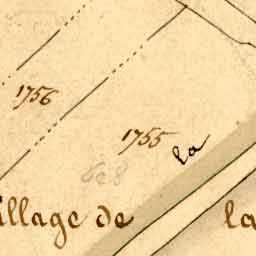 1756
1755
la
628
illage de la